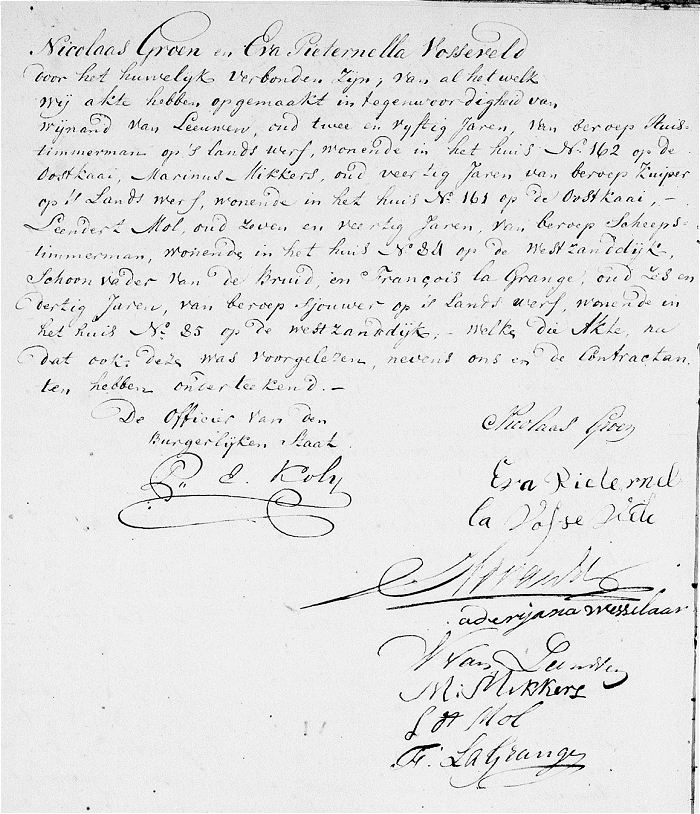 Nicolaas Groen en Eva Pieternella Vosseveld
door het huwelyk verbonden zyn; van al het welk
wij akte hebben opgemaakt in tegenwoordigheid van
wijnand van Leeuwen, oud twee en vyftig Jaren, van beroep Huis-
timmerman op's lands werf, wonende in het huis No. 162 op de
Oostkaai, Marinus Mikkers, oud veertig Jaren van beroep Kuiper
op's Lands werf, wonende in het huis No. 161 op de Oostkaai, –
Leendert Mol, oud zeven en veertig Jaren, van beroep Scheeps-
timmerman, wonende in het huis No. 84 op de westzanddijk,
Schoon vader van de Bruid, en François la Grange, oud zes en
dertig Jaren, van beroep Sjouwer op's lands werf, wonende in
het huis No. 85 op de westzanddijk; – welke die Akte, na
dat ook deze was voorgelezen, nevens ons en de Contractan
ten hebben onderteekend. –
De Officier van den
Burgerlijken Staat
P. E. Koly
Nicolaas Groen
Eva Pieternel
la Vosse
aderijana wesselaar
W van
M: Mikkers
L dt Mol
F. LaGrange